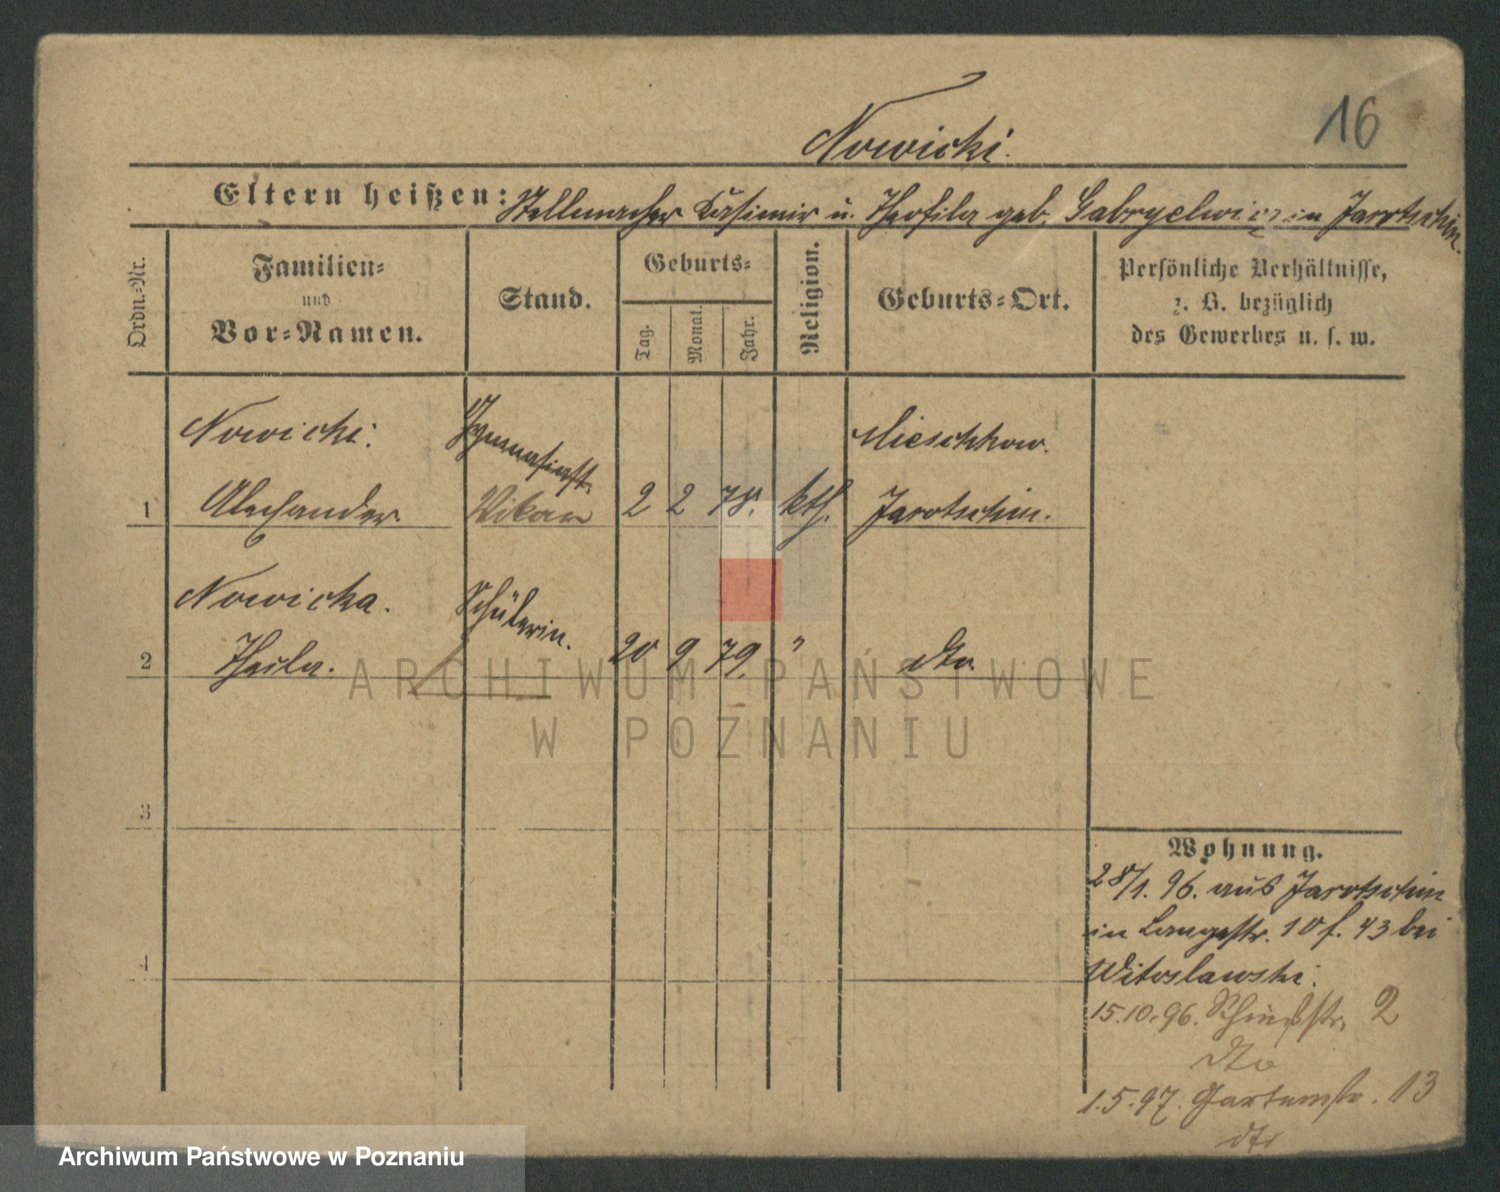 16
Nowicki.
Eltern heißen: Stellmacher Kasimir u. Theofila geb. Gabryelwicz in Jarotschin.
Ordn.-Nr.
Familien-
und
Vor-Namen.
Stand.
Geburts-
Tag.
Monat.
Jahr.
Religion.
Geburts-Ort.
Persönliche Verhältnisse,
z. B. bezüglich
des Gewerbes u. s. w.
Nowicki. Gymnasiast. Mieschkow.
1 Alexander Vikar 2 2 78. kth. Jarotschin.
Nowicka. Schülerin.
2 Thecla. 20 9 79. " dto.
ARCHIWUM PAŃSTWOWE
W POZNANIU
3
4
Wohnung.
28/1. 96. aus Jarotschin
in Langestr. 10 f. 43 bei
Witoslawski.
15.10.96. 2
dto
1.5.97. Gartenstr. 13
dto
Archiwum Państwowe w Poznaniu